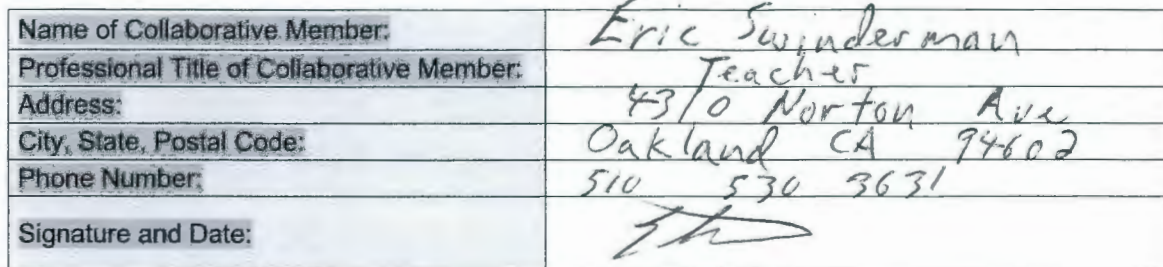 Name of Collaborative Member: Eric Swinderman
Professional Title of Collaborative Member: Teacher
Address: 4310 Norton Ave
City, State, Postal Code: Oakland CA 94602
Phone Number: 510 530 3631
Signature and Date: